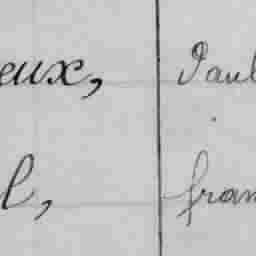 eux, Paul
l, fran